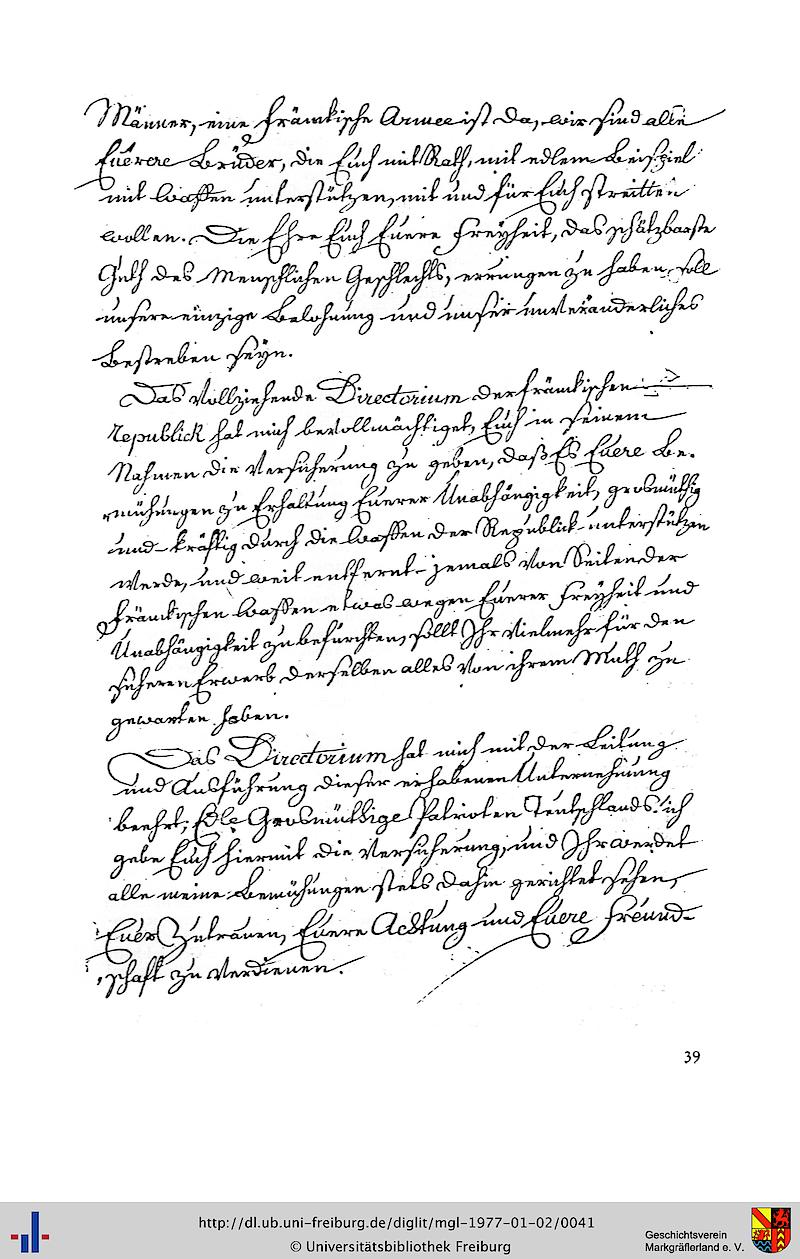 Männer, eine Fränkische Armee ist da, wir sind alle
Euere Brüder, die Euch mit Rath, mit edlem Beispiel
mit Waffen unterstützen, mit und für Euch streitten
wollen. Die Ehre Euch Euere Freyheit, das schätzbarste
Guth des Menschlichen Geschlechts, errungen zu haben, soll
unsere einzige Belohnung und unser unveränderliches
Bestreben seyn.
Das Vollziehende Directorium der fränkischen
Republick hat mich bevollmächtiget, Euch in seinem
Nahmen die Versicherung zu geben, daß Es Euere Be-
mühungen zu Erhaltung Euerer Unabhängigkeit, grosmüthig
und kräftig durch die Waffen der Republick unterstützen
werde, und weit entfernt jemals von Seiten der
Fränkischen Waffen etwas wegen Euerer Freyheit und
Unabhängigkeit zu befürchten, sollt Ihr Vielmehr für den
sicheren Erwerb derselben alles von ihrem Muth zu
gewarten haben.
Das Directorium hat mich mit der Leitung
und Ausführung dieser erhabenen Unternehmung
beehrt; Edle Grosmüthige Patrioten Teutschlands! ich
gebe Euch hiermit die Versicherung, und Ihr werdet
alle meine Bemühungen stets dahin gerichtet sehen,
Euer Zutrauen, Euere Achtung und Euere Freund-
schaft zu verdienen.
39
http://dl.ub.uni-freiburg.de/diglit/mgl-1977-01-02/0041
© Universitätsbibliothek Freiburg
Geschichtsverein
Markgräflerland e. V.